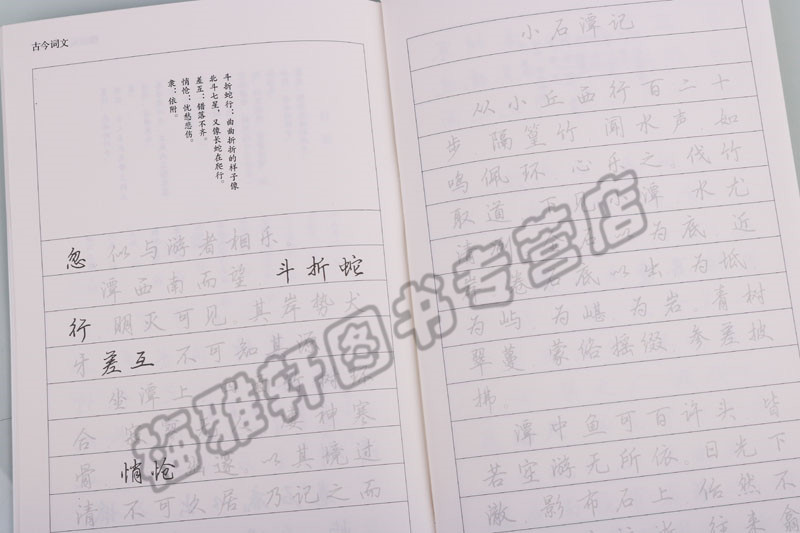 古今词文
斗折蛇行：曲曲折折的样子像
北斗七星，又像长蛇在爬行。
差互：错落不齐。
悄怆：忧愁悲伤。
隶：依附。
忽 似与游者相乐。
潭西南而望 斗折蛇
行 明灭可见。其岸势犬
牙差互 不可知其
坐潭上
合 神寒
骨 悄怆 邃 以其境过
清 不可久居 乃记之而
小石潭记
从小丘西行百二十
步 隔篁竹 闻水声 如
鸣佩环 心乐之。伐竹
取道 下见小潭 水尤
清 为底 近
岸 卷石底以出 为坻
为屿 为嵁 为岩。青树
翠蔓 蒙络摇缀 参差披
拂。
潭中鱼可百许头 皆
若空游无所依。日光下
澈 影布石上 佁然不
往来翕
梅雅轩图书专营店